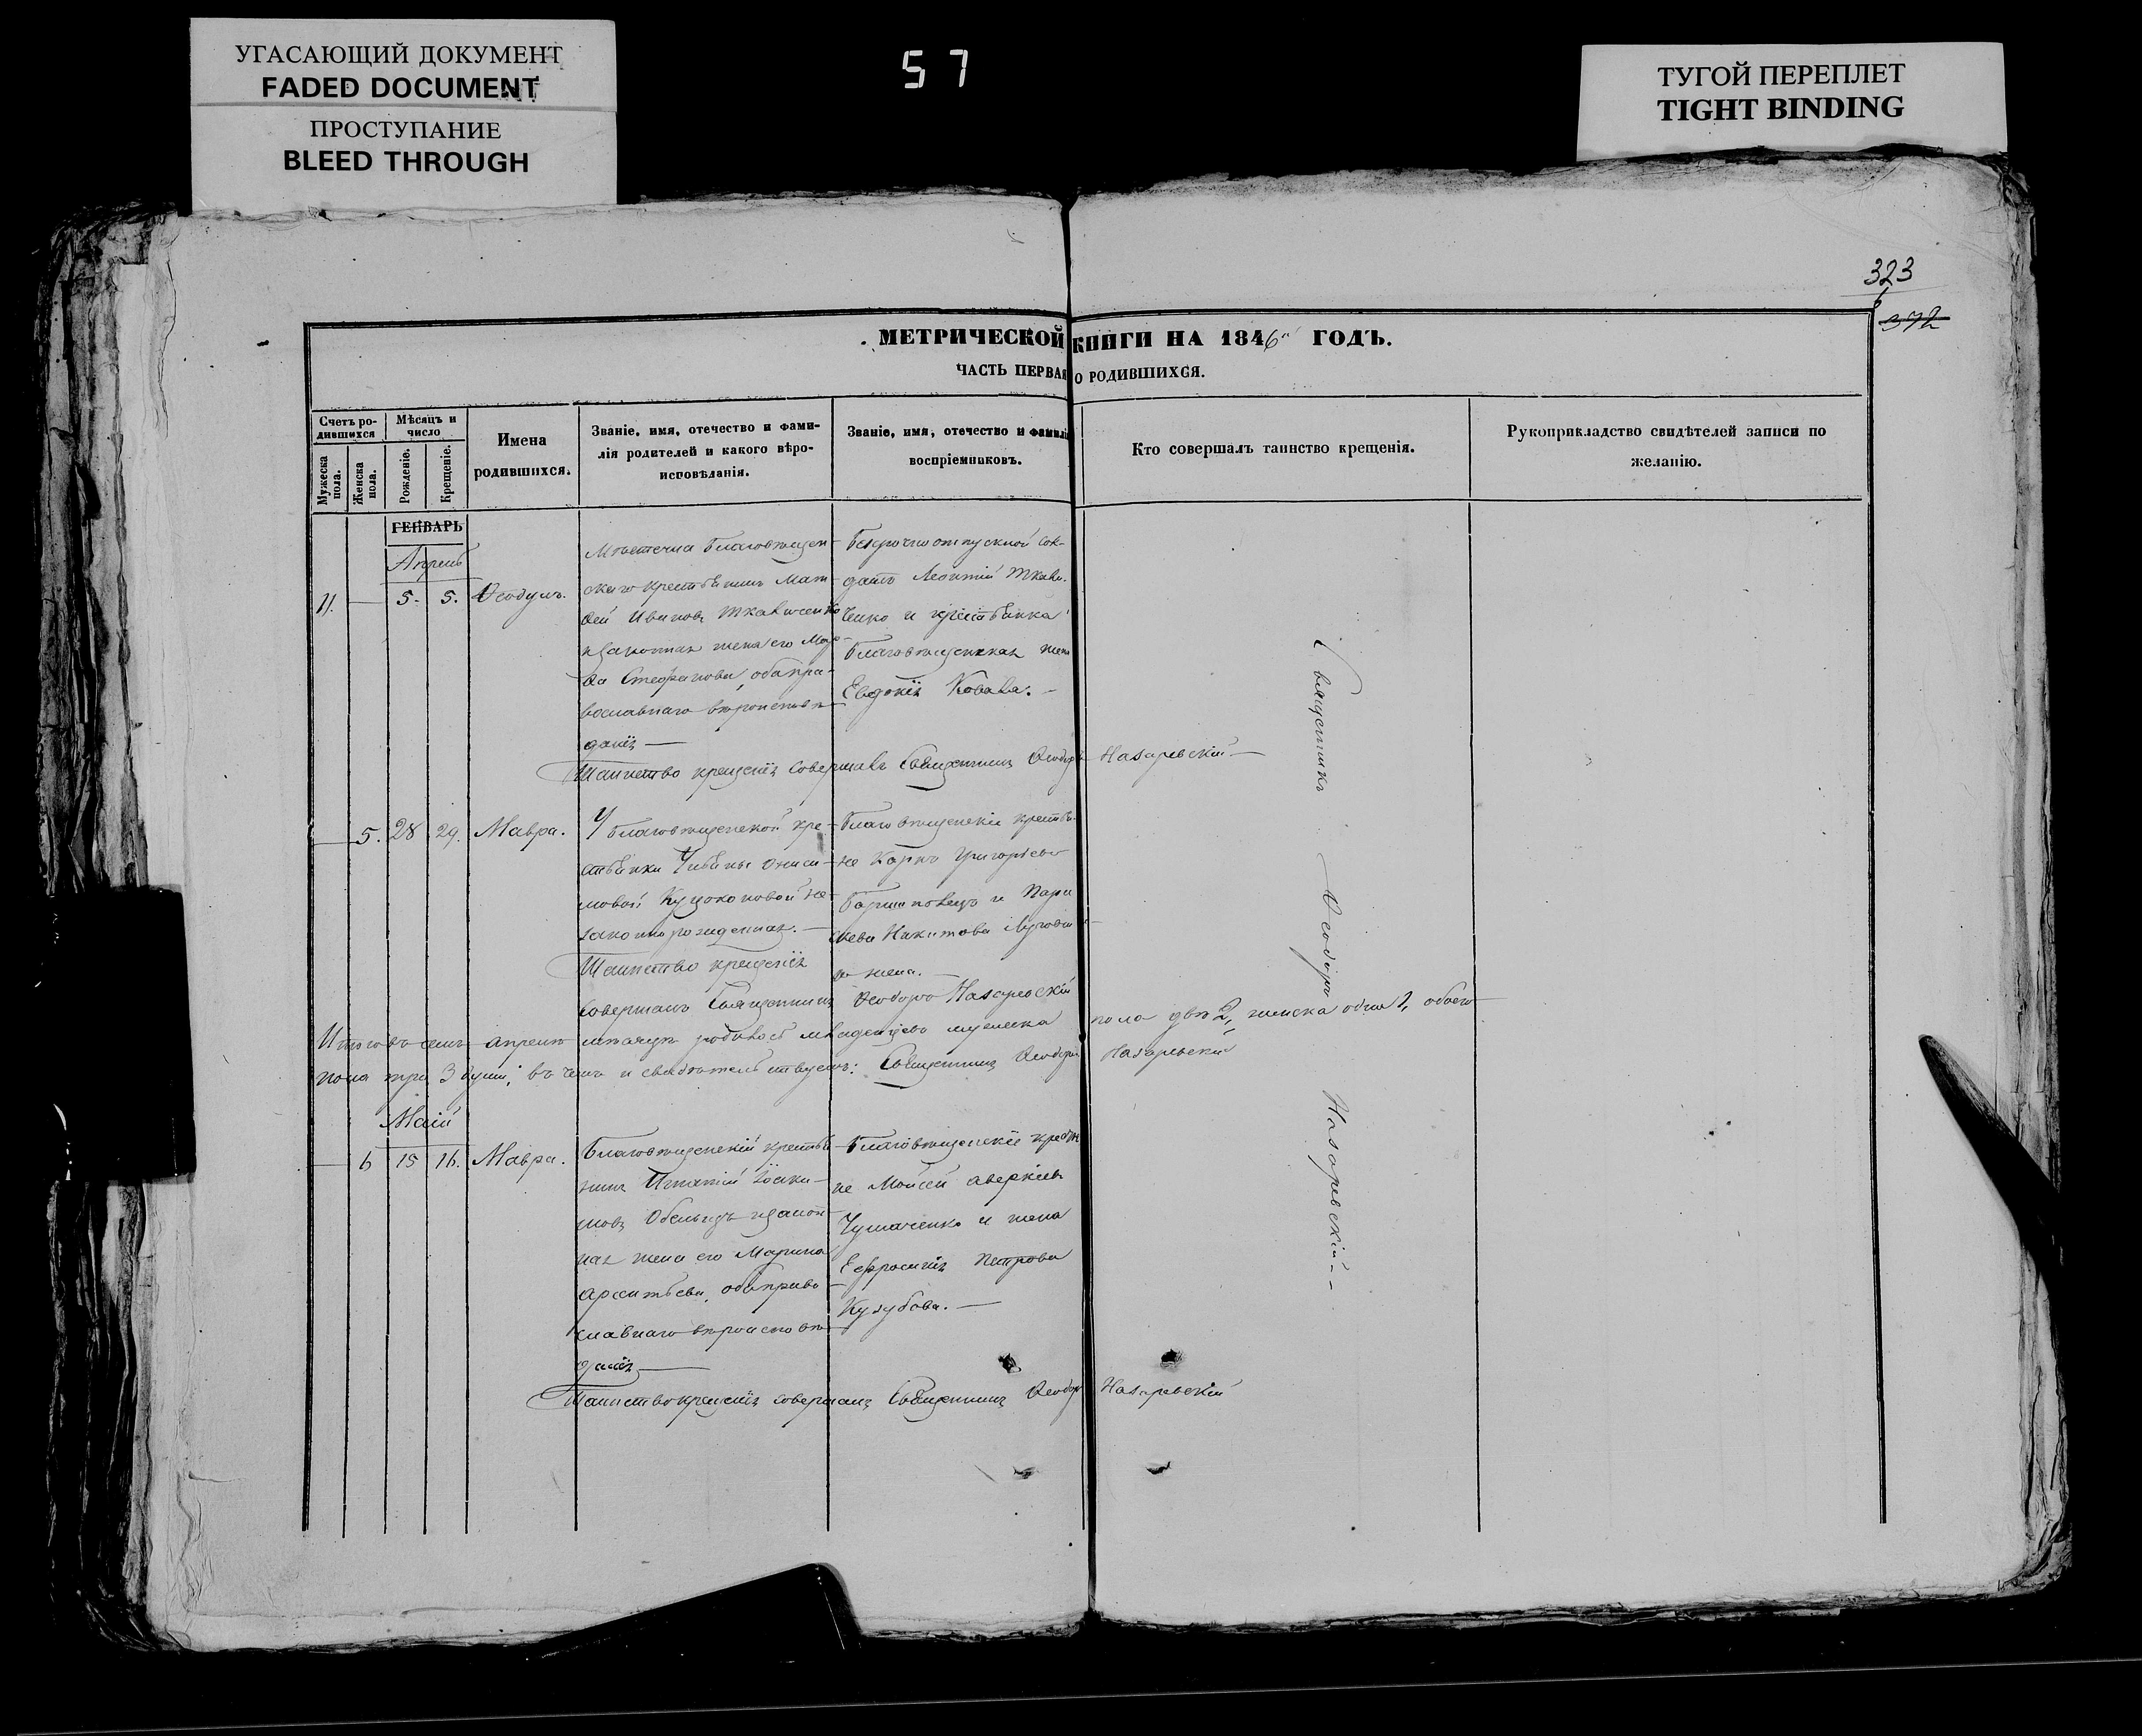 УГАСАЮЩИЙ ДОКУМЕНТ
FADED DOCUMENT
ПРОСТУПАНИЕ
BLEED THROUGH
57
ТУГОЙ ПЕРЕПЛЕТ
TIGHT BINDING
323
372
МЕТРИЧЕСКОЙ КНИГИ НА 1846 ГОДЪ.
ЧАСТЬ ПЕРВАЯ О РОДИВШИХСЯ.
Счетъ ро-
дившихся
Мужеска пола.
Женска пола.
Мѣсяцъ и
число
Рожденіе.
Крещеніе.
Имена
родившихся.
Званіе, имя, отечество и фами-
лія родителей и какого вѣро-
исповѣданія.
Званіе, имя, отечество и фамилія
воспріемниковъ.
Кто совершалъ таинство крещенія.
Рукоприкладство свидѣтелей записи по
желанію.
ГЕНВАРЬ
Апрель
11. 5. 5. Ѳеодулъ.
Мѣстечка Благовѣщен-
скаго крестьянинъ Мат-
ѳей Ивановъ Ткавченко
жена его Мар-
ѳа Стефанова, оба пра-
вославнаго вѣроисповѣ-
данія
солдатъ Леонтій Ткав-
ченко и крестьянка
Благовѣщенская жена
Евдокія
Таинство крещенія совершалъ Священникъ Ѳеодоръ Назаревскій
5. 28 29. Мавра.
У Благовѣщенской кре-
стьянки Ониси-
мовой не-
законнорожденная.
Благовѣщенскіе крестья-
не Карпъ Григорьевъ
и Параскева Никитова
жена.
Таинство крещенія
совершалъ Священникъ Ѳеодоръ Назаревскій
Итого въ семъ апрелѣ мѣсяцѣ родилось младенцевъ мужеска пола два 2, женска одна 1, обоего
пола три 3 души; въ чемъ и свидѣтельствуемъ: Священникъ Ѳеодоръ Назаревскій
Маій
6 15 16. Мавра.
Благовѣщенскій крестья-
нинъ Игнатій Іоаки-
мовъ законная
жена его Марина
оба право-
славнаго вѣроисповѣ-
данія
Благовѣщенскіе крестьяне
Моисей Аверкіевъ
Чумаченко и жена
Ефросинія Петрова
Кузубова.
Таинство крещенія совершалъ Священникъ Ѳеодоръ Назаревскій
Священникъ Ѳеодоръ Назаревскій